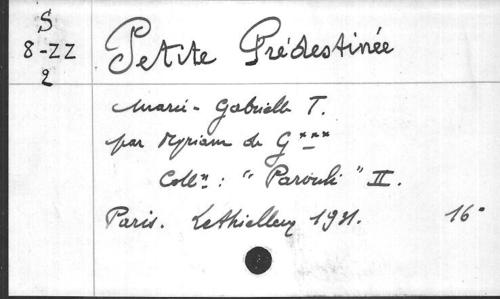 S
8-ZZ
2
Petite Prédestinée
Marie-Gabrielle T.
par Myriam de G***
Collⁿ : "Parouli" II.
Paris. Lethielleux 1931. 16°